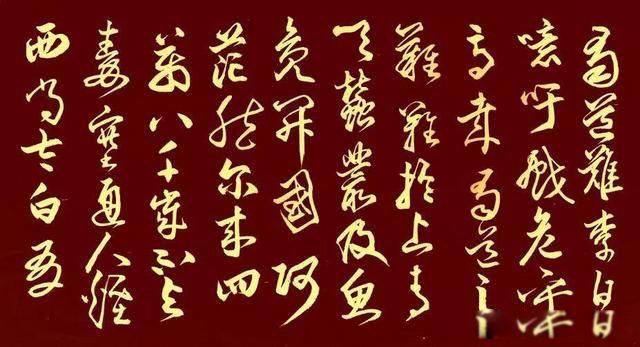 蜀道難李白
噫吁戲危乎
高哉蜀道之
難難於上青
天蠶叢及魚
鳧開國何
茫然尔来四
萬八千歲不与
秦塞通人煙
西当太白有